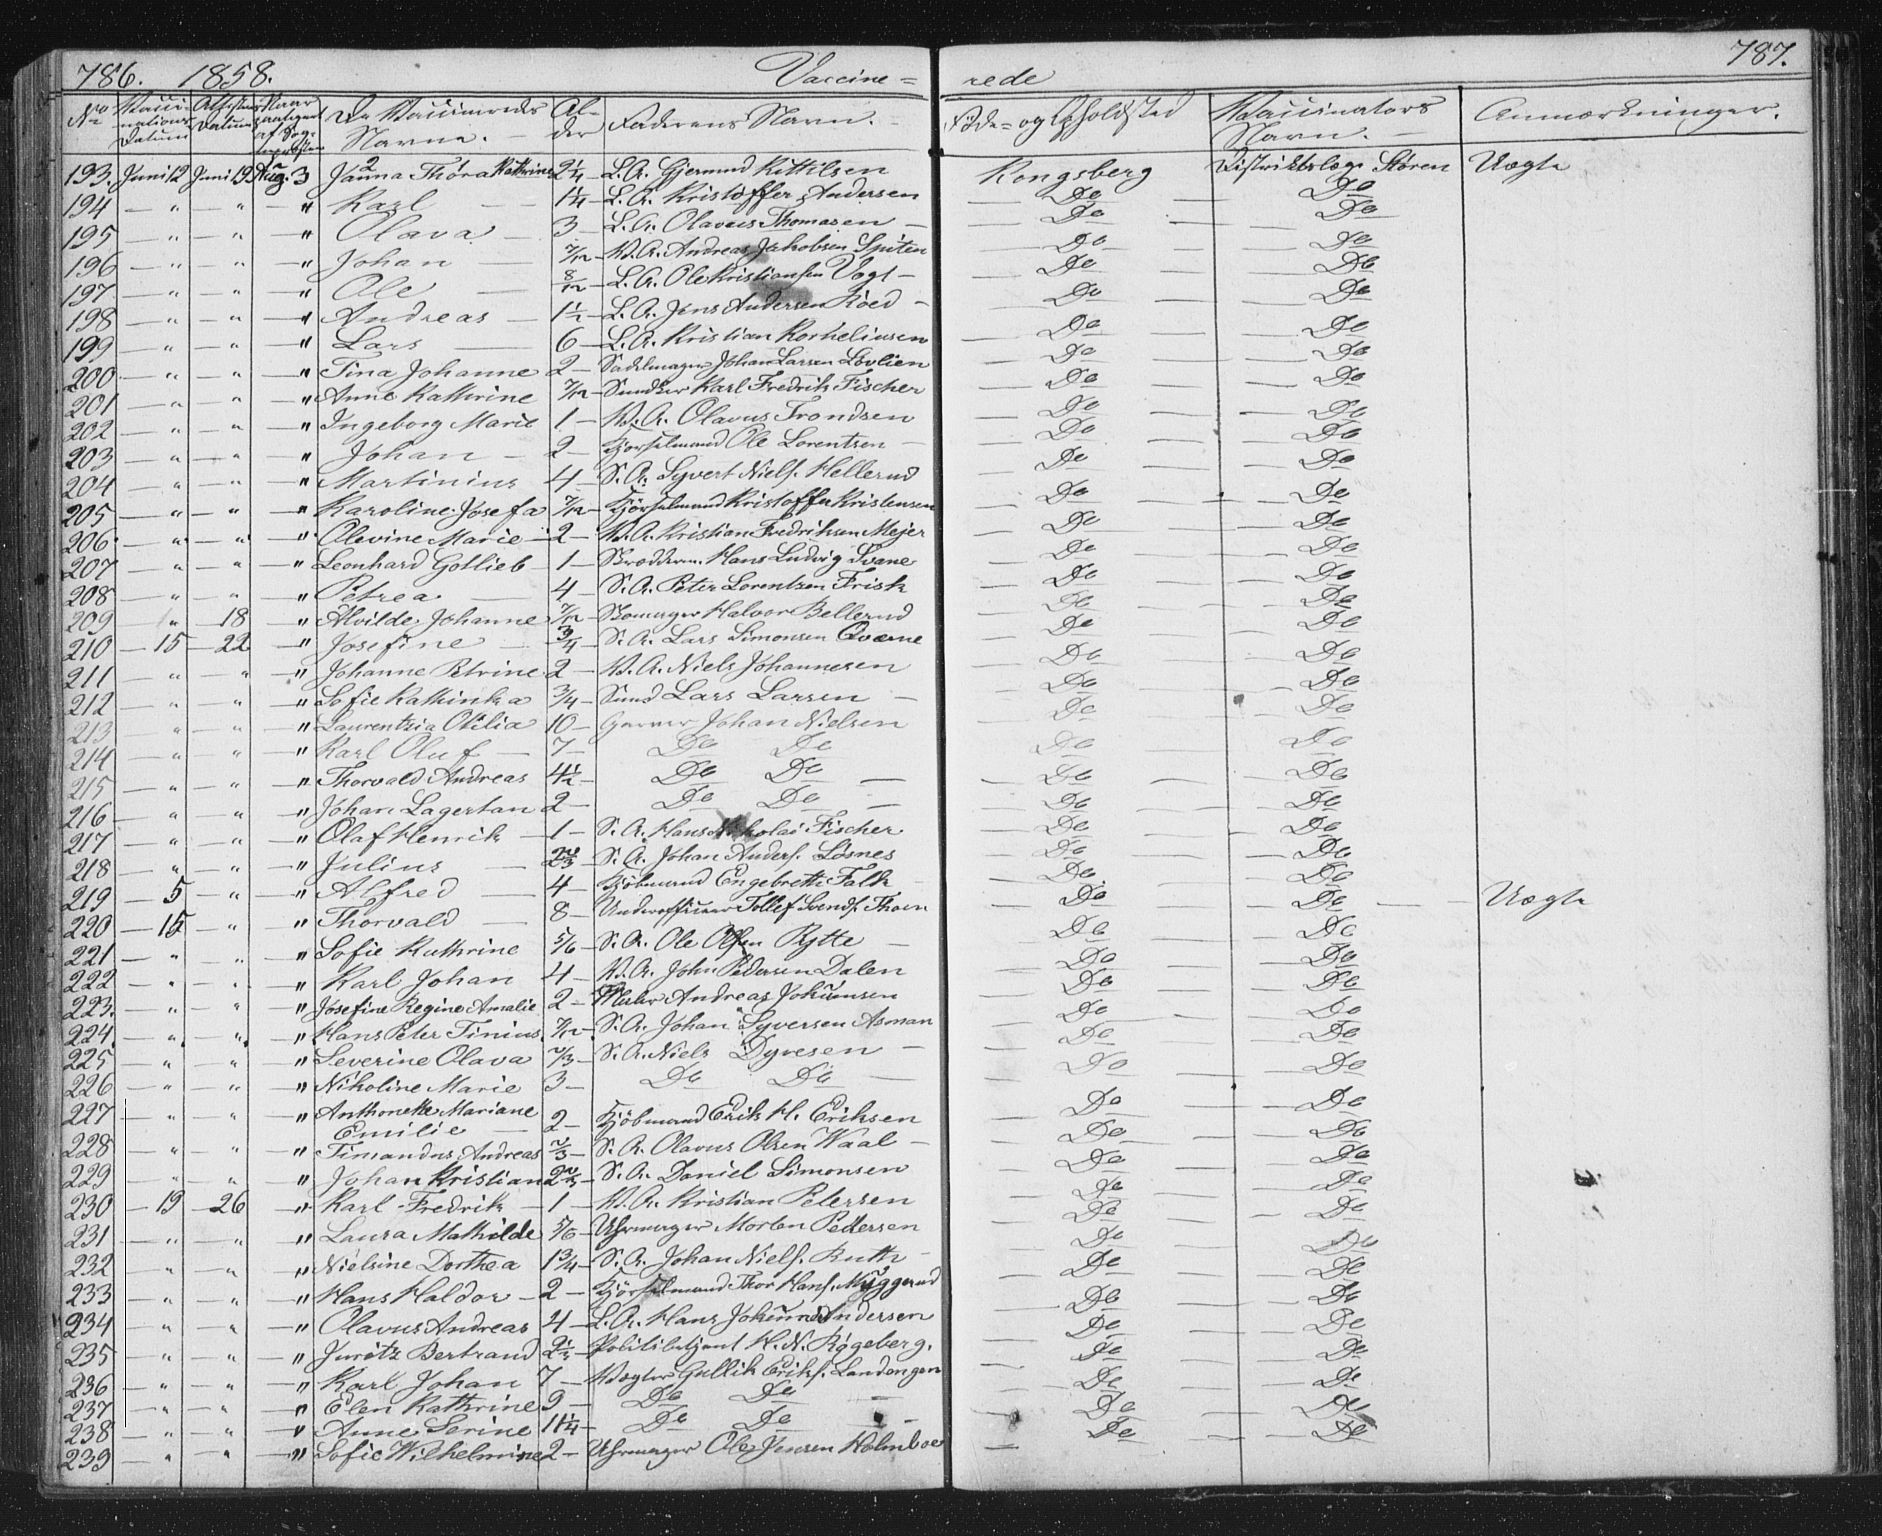 786. 1858. Vaccine=
rede 787.
No Vacci-nations Datum Attestens Datum De Vaccineredes Navne. Al-der Faderens Navn. Føde- og Opholdsted Vaccinators Navn. Anmærkninger.
193. Juni 12 Juni 19 Aug. 3 Janna Thóra Kathrine 2¼ L. A. Gjermund Kittilsen Kongsberg Distriktslæge Støren Uægte
194 — " — " — " Karl 1¼ L. A. Kristoffer Andersen Do Do
195 — " — " — " Olava 3 — L. A. Olavus Thomasen — Do Do
196 — " — " — " Johan 7/12 — B. A. Andreas Jakobsen Spiten Do Do
197 — " — " — " Ole 8/12 — L. A. Ole Kristiansen Vogt — Do Do
198 — " — " — " Andreas — 1½ — L. A. Jens Andersen Roed — Do Do
199 — " — " — " Lars 6 — L. A. Kristian Korneliusen Do Do
200 — " — " — " Tina Johanne 2 — Sadelmager Johan Larsen Løvlien Do Do
201 — " — " — " Anne Kathrine 7/12 — Karl Fredrik Fischer Do Do
202 — " — " — " Ingeborg Marie 1 — B. A. Olavus Trondsen Do Do
203 — " — " — " Johan — 2 — Kjørselmand Ole Lorentsen — Do Do
204 — " — " — " Martinius 4 — S. A. Syvert Niels. Hellerud Do Do
205 — " — " — " Karoline Josefa 7/12 — Kjørselmand Kristoffer Kristensen Do Do
206 — " — " — " Olevine Marie — 2 — B. A. Kristian Fredriksen Mejer Do Do
207 — " — " — " Leonhard Gotlieb — 1 — Skrædderm. Hans Ludvig Svane Do Do
208 — " — " — " Petrea 4 — S. A. Peter Lorentzen Frisk Do Do
209 " — 18 — " Alvilde Johanne 7/12 — Skomager Halvor Bellerud Do Do
210 — 15 — 22 — " Josefine — ¾ — S. A. Lars Simonsen Qværne Do Do
211 — " — " — " Johanne Petrine 2 — B. A. Niels Johannesen Do Do
212 — " — " — " Sofie Kathinka ¾ — Smed Lars Larsen — Do Do
213 — " — " — " Laurentzia Otilia 10 — Garver Johan Nielsen Do Do
214 — " — " — " Karl Oluf — 7 — Do Do Do Do
215 — " — " — " Thorvald Andreas 4½ — Do Do — Do Do
216 — " — " — " Johan Lagertan 2 — Do Do — Do Do
217 — " — " — " Olaf Henrik — 1 — S. A. Hans Nikolai Fischer Do Do
218 — " — " — " Julius 2⅔ — S. A. Johan Anders. Løsnes Do Do
219 — 5 — " — " Alfred 4 — Kjøbmand Engebreth Falk Do Do Uægte
220 — 15 — " — " Thorvald 8 — Underofficeer Tollef Svends. Thoen Do Do
221 — " — " — " Sofie Kathrine 5/6 — S. A. Ole Olsen Rytte — Do Do
222 — " — " — " Karl Johan 4 — B. A. John Pedersen Dalen Do Do
223 — " — " — " Josefine Regine Amalie 2 — Andreas Johannsen Do Do
224. — " — " — " Hans Peter Tinius 7/12 — S. A. Johan Syversen Asman Do Do
225 — " — " — " Severine Olava ⅔ — S. A. Niels Dyresen — Do Do
226 — " — " — " Nikoline Marie 3 — Do Do — Do Do
227 " — " — " Anthonette Mariane
Emilie 2 — Kjøbmand Erik H. Eriksen Do Do
228 — " — " — " Timandus Andreas ⅔ — S. A. Olavus Olsen Waal — Do Do
229 — " — " — " Johan Kristian 2⅔ — S. A. Daniel Simonsen Do Do
230 — 19 — 26 — " Karl Fredrik — 1 — B. A. Kristian Petersen Do Do
231 — " — " — " Laura Mathilde 5/6 — Uhrmager Morten Pettersen Do Do
232 — " — " — " Nielsine Dorthea 1¾ — S. A. Johan Niels. Ruth — Do Do
233 — " — " — " Hans Haldor — 2 — Kjørselmand Thor Hans. Muggerud Do Do
234 — " — " — " Olavus Andreas 4 — L. A. Hans Johannes Andersen Do Do
235 — " — " — " Juritz Bertrand 2½ — Politibetjent H. N. Røgeberg. Do Do
236 — " — " — " Karl Johan 7 — Vægter Gullik Eriks. Landongen Do Do
237 — " — " — " Elen Kathrine 9 — Do Do — Do Do
238 — " — " — " Anne Serine 11¼ — Do Do — Do Do
239 — " — " — " Sofie Wilhelmine 2 — Uhrmager Ole Jensen Holmboe